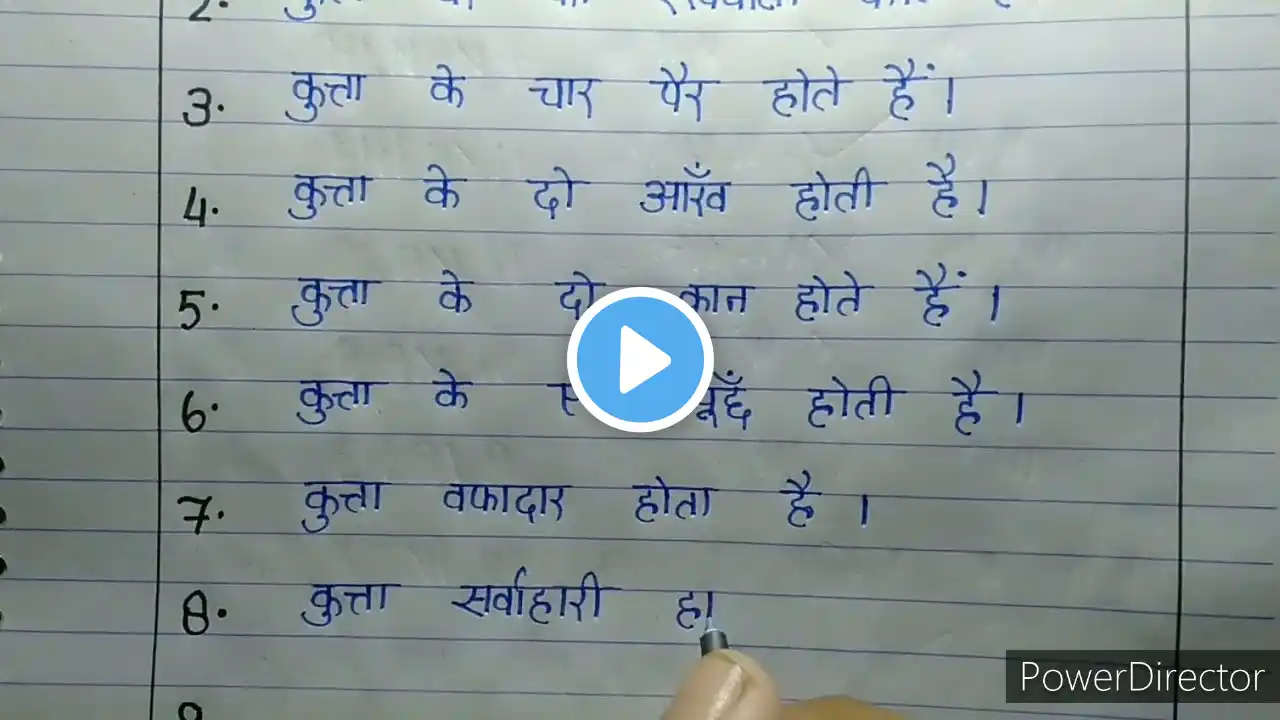 3. कुत्ता के चार पैर होते हैं।
4. कुत्ता के दो आँख होती है।
5. कुत्ता के दो कान होते हैं।
6. कुत्ता के होती है।
7. कुत्ता वफादार होता है।
8. कुत्ता सर्वाहारी हा
PowerDirector